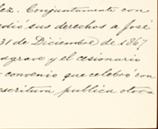 lez. Conjuntamente con
edió sus derechos a José
31 de Diciembre de 1867
agravo y el cesionario
convenio que celebró con
escritura publica otor